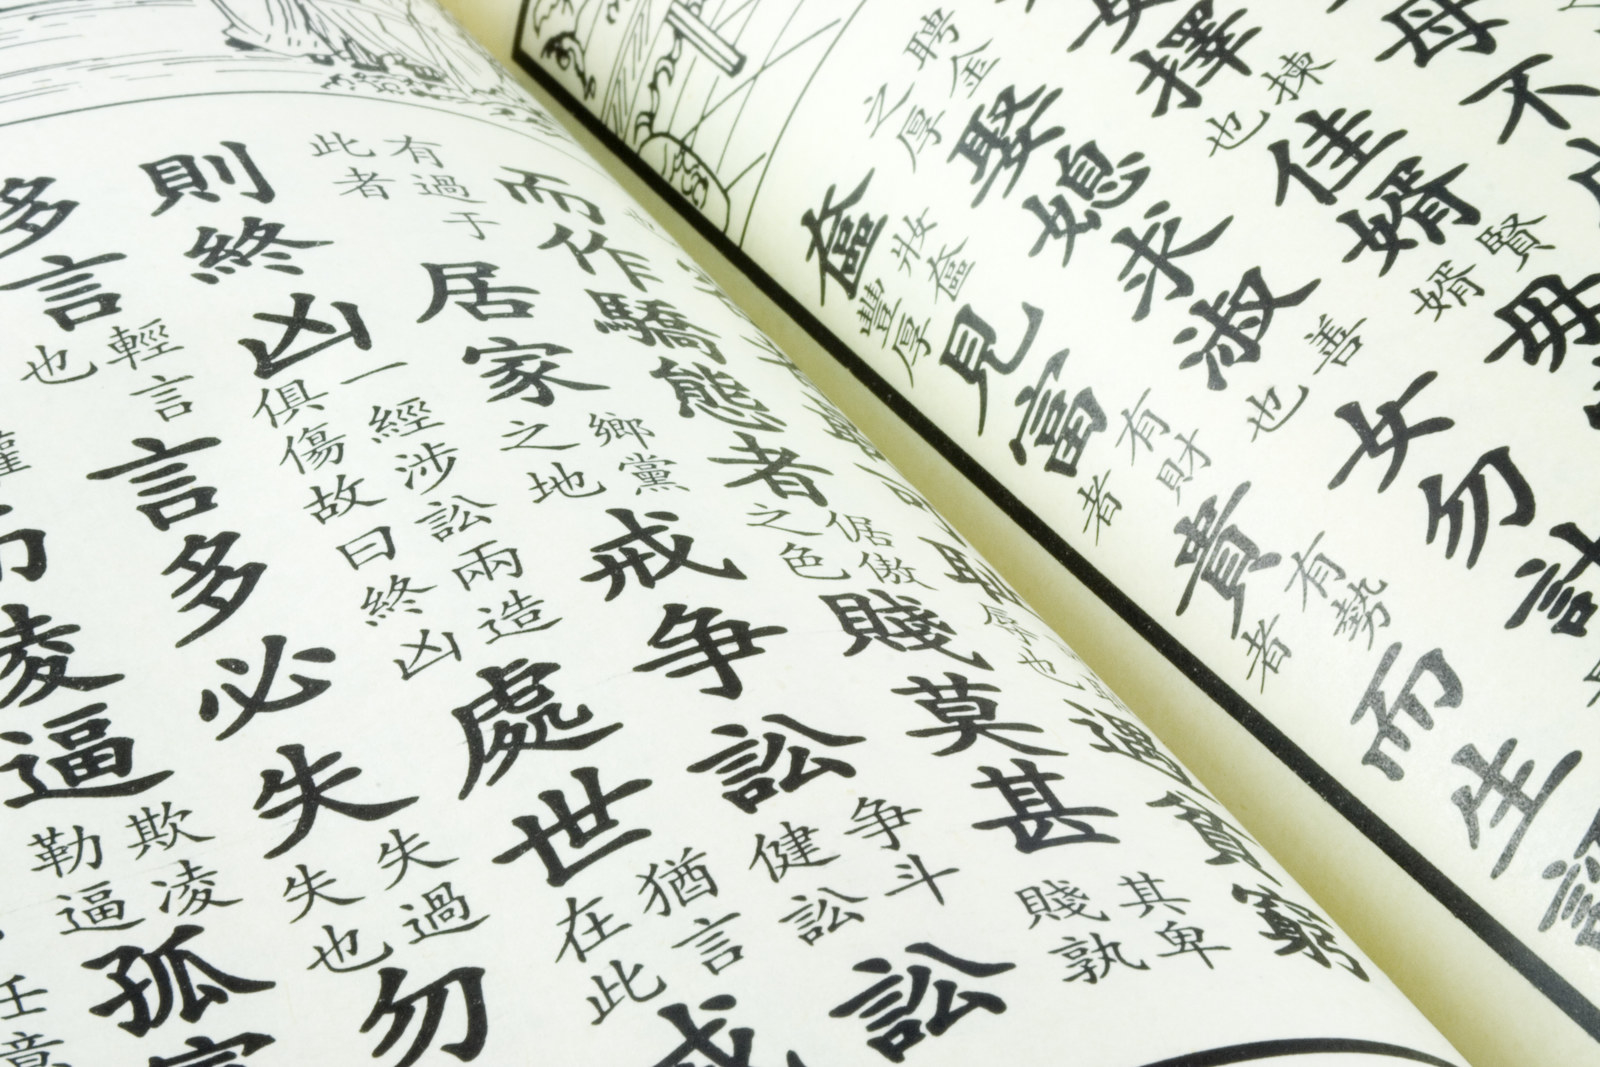 母不
女擇揀也佳婿賢婿毋
聘金之厚娶媳求淑善也女勿計
奩妝奩豐厚見富有財者貴有勢者而生諂
恥辱也遇貧窮
而作驕態者倨傲之色賤莫甚其卑賤孰
有過于此者居家鄉黨之地戒争訟争斗健訟訟
則終凶一經涉訟兩造俱傷故曰終凶處世猶言在此戒
多言輕言也言多必失失過失也勿
而凌逼欺凌勒逼孤寡
任意